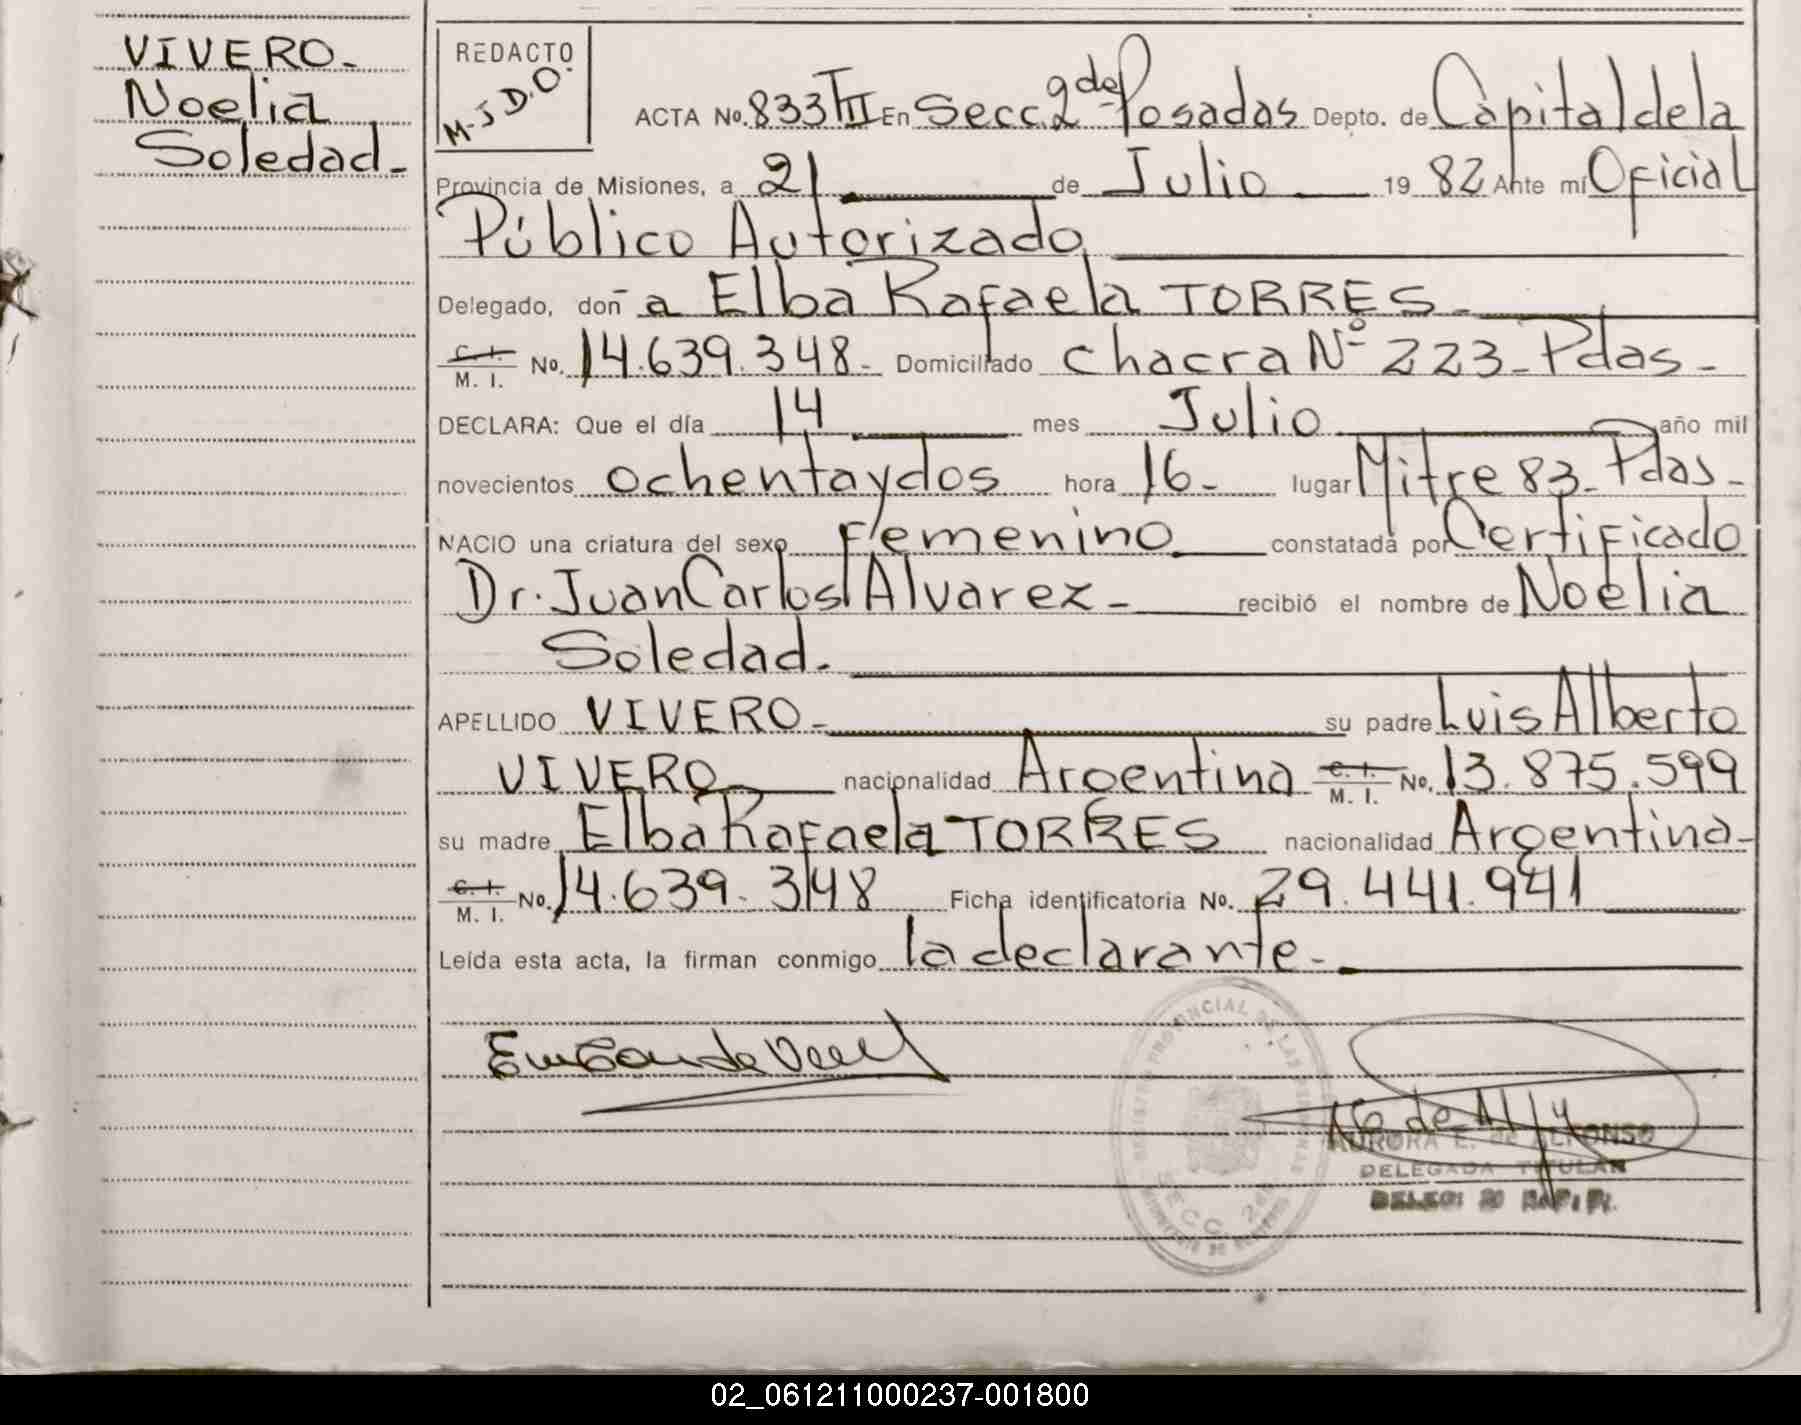 VIVERO-
Noelia
Soledad-
REDACTO
M.J.D.O.
ACTA No. 833 TIII En Secc. 2da Posadas Depto. de Capital de la
Provincia de Misiones, a 21 de Julio 19 82 Ante mí Oficial
Público Autorizado
Delegado, don a Elba Rafaela TORRES-
C. I.
M. I. No. 14.639.348- Domiciliado chacra Nº 223-Pdas-
DECLARA: Que el día 14 mes Julio año mil
novecientos ochentaydos hora 16- lugar Mitre 83-Pdas-
NACIO una criatura del sexo Femenino constatada por Certificado
Dr. Juan Carlos Alvarez- recibió el nombre de Noelia
Soledad.
APELLIDO VIVERO- su padre Luis Alberto
VIVERO nacionalidad Argentina C. I. M. I. No. 13.875.599
su madre Elba Rafaela TORRES nacionalidad Argentina-
C. I.
M. I. No. 14.639.348 Ficha identificatoria No. 29.441.941
Leída esta acta, la firman conmigo la declarante.-
REGISTRO PROVINCIAL DE LAS PERSONAS
SECC. 2da
AURORA E. de ALFONSO
DELEGADA TITULAR
02_061211000237-001800